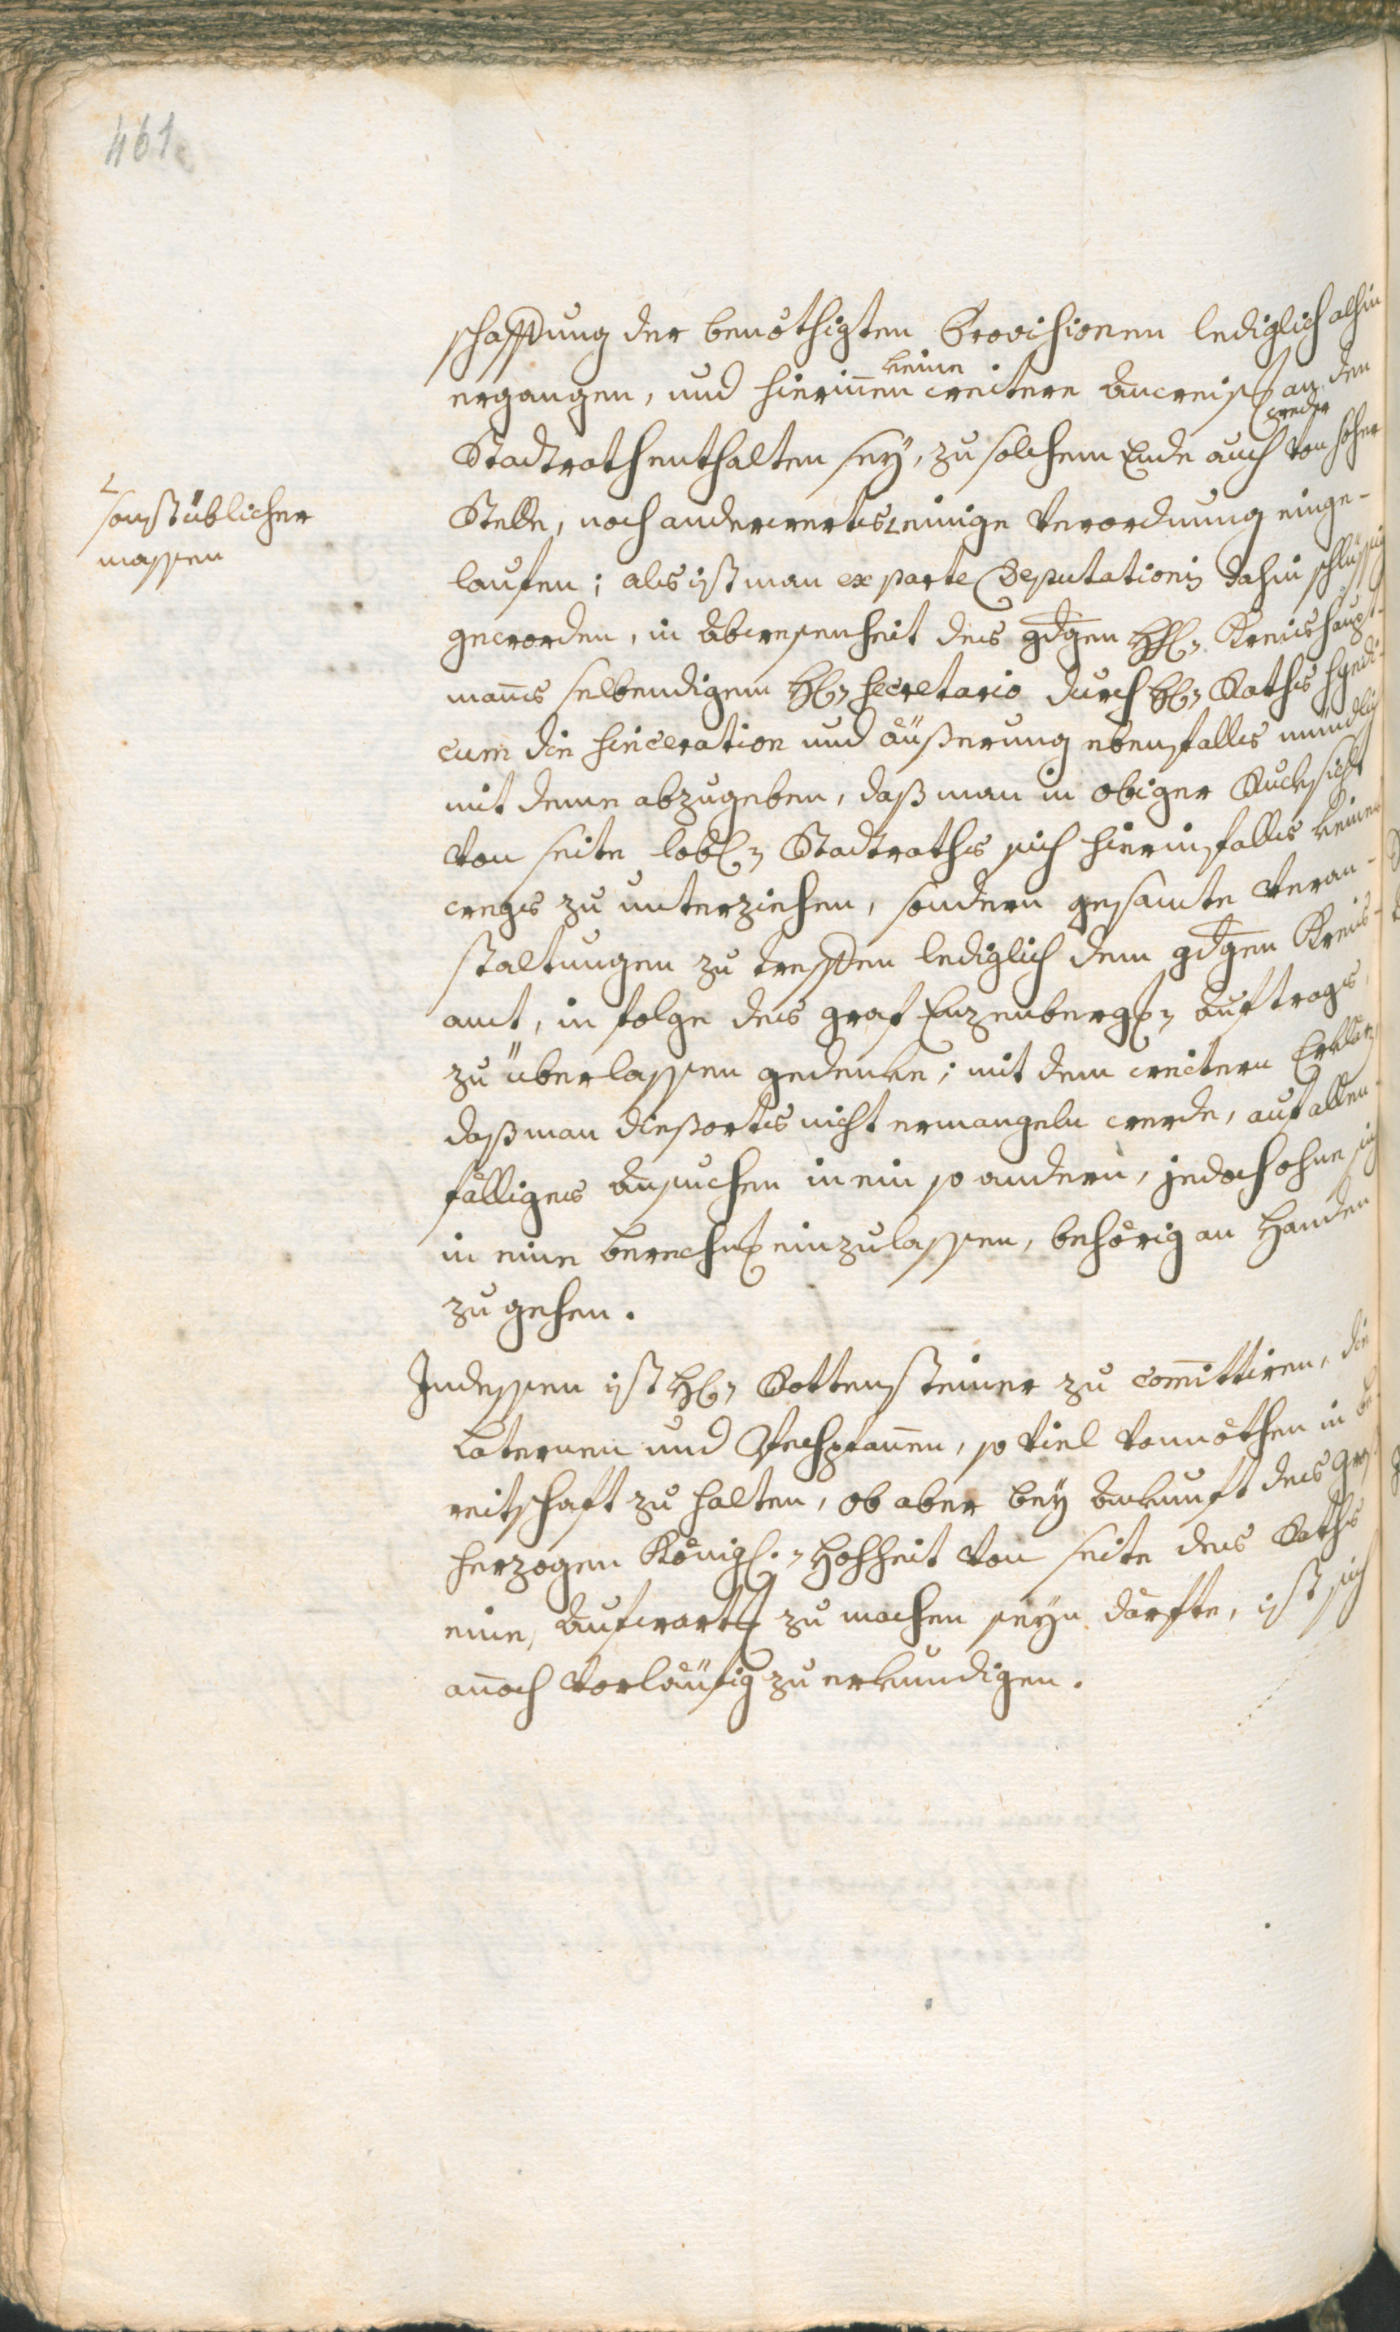 461
schaffung der benöthigten Provisionen lediglich alhin
ergangen, und hierinnen keine weitere Anweisg an den
Stadtrath enthalten seÿ, zu solchem Ende auch weder von hoher
Stelle, noch anderwerts einige Verordnung einge-
sonst üblicher
massen
laufen; als ist man ex parte Deputationis dahin schlüssig
geworden, in Abwesenheit des gdgen HH. Kreishaupt-
manns selbendigem H. Secretario durch H. Raths Syndi-
cum die Sinceration und äüßerung ebenfalls mündlich
mit deme abzugeben, daß man in obiger Rucksicht
von seite löbl. Stadtraths sich hierinfalls keiner
wegs zu unterziehen, sondern gesamte Veran-
staltungen zu treffen lediglich dem gdgen Kreis-
amt, in folge des graf Enzenbergl. auftrags,
zu überlassen gedenke; mit dem weitern Erklären
daß man dießorts nicht ermangeln werde, auf allen-
fälliges Ansuchen in ein so andern, jedoch ohne sich
in eine berechng einzulassen, behörig an Handen
zu gehen.
Indessen ist H. Rottensteiner zu committiren, die
Laternen und Pechpfannen, so viel vonnöthen in be
reitschaft zu halten, ob aber beÿ Ankunft des Gros
herzogen Königl. Hohheit von seite des Raths
eine Aufwartg zu machen seyn dürfte, ist sich
annoch vorläüfig zu erkundigen.